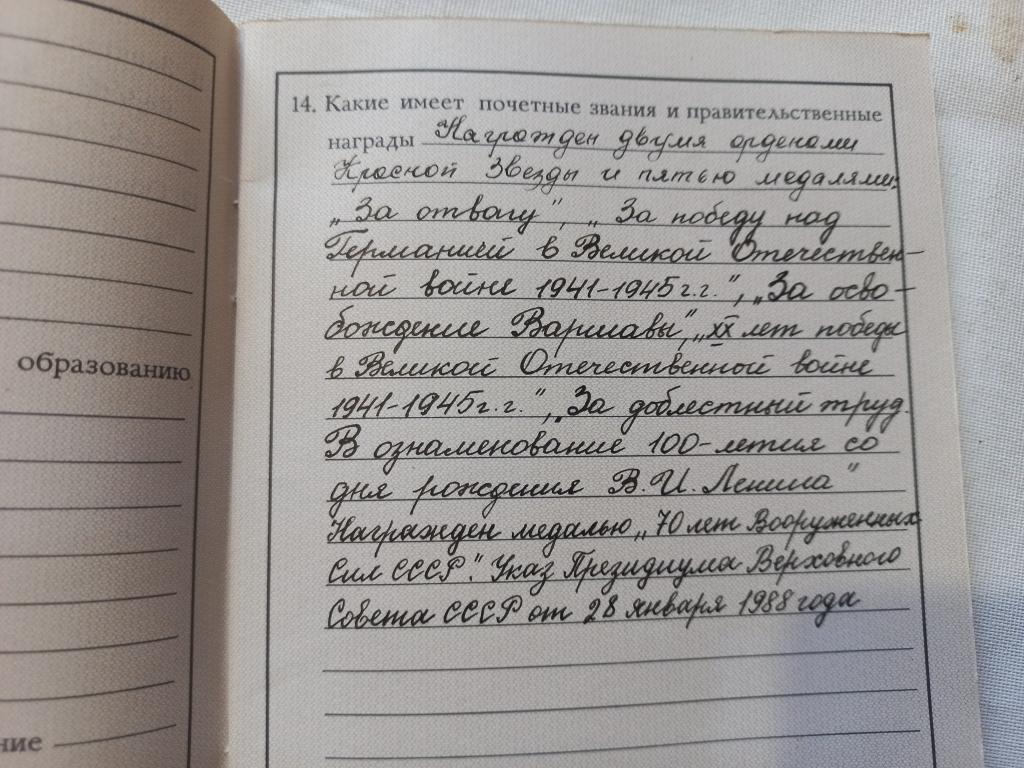 образованию
ние
14. Какие имеет почетные звания и правительственные
награды Награжден двумя орденами
Красной Звезды и пятью медалями:
„За отвагу", „За победу над
Германией в Великой Отечествен-
ной войне 1941-1945 г.г.", „За осво-
бождение Варшавы", „XX лет победы
в Великой Отечественной войне
1941-1945 г.г.", „За доблестный труд.
В ознаменование 100-летия со
дня рождения В.И. Ленина"
Награжден медалью „70 лет Вооруженных
Сил СССР". Указ Президиума Верховного
Совета СССР от 28 января 1988 года